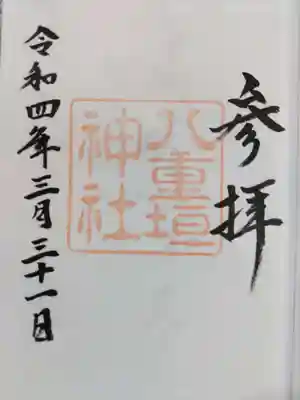 参拝
八重垣
神社
令和四年三月三十一日